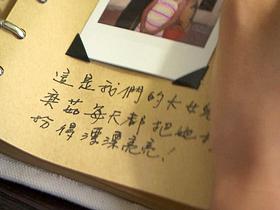 這是我們的大女兒
奕茹每天都把她打
扮得漂漂亮亮！